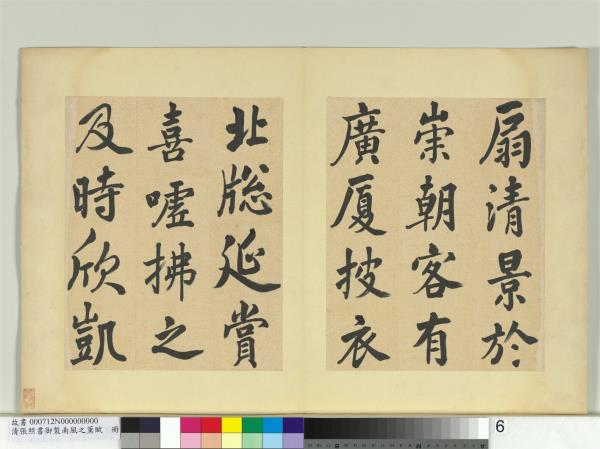 扇清景於
崇朝客有
廣厦披衣
北牎延賞
喜噓拂之
及時欣凱
故書 000712N000000000
清張照書御製南風之薰賦 冊
6